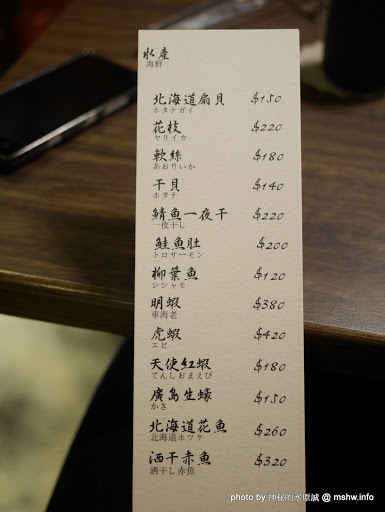 水產
海鮮
北海道扇貝 $150
ホタテガイ
花枝 $220
ヤリイカ
軟絲 $180
あおりいか
干貝 $140
ホタテ
鯖魚一夜干 $220
一夜干し
鮭魚肚 $200
トロサーモン
柳葉魚 $120
シシャモ
明蝦 $380
車海老
虎蝦 $420
エビ
天使紅蝦 $180
てんしおまえび
廣島生蠔 $150
かき
北海道花魚 $260
北海道ホツケ
酒干赤魚 $320
酒干し赤魚
photo by 神秘的水原誠 @ mshw.info